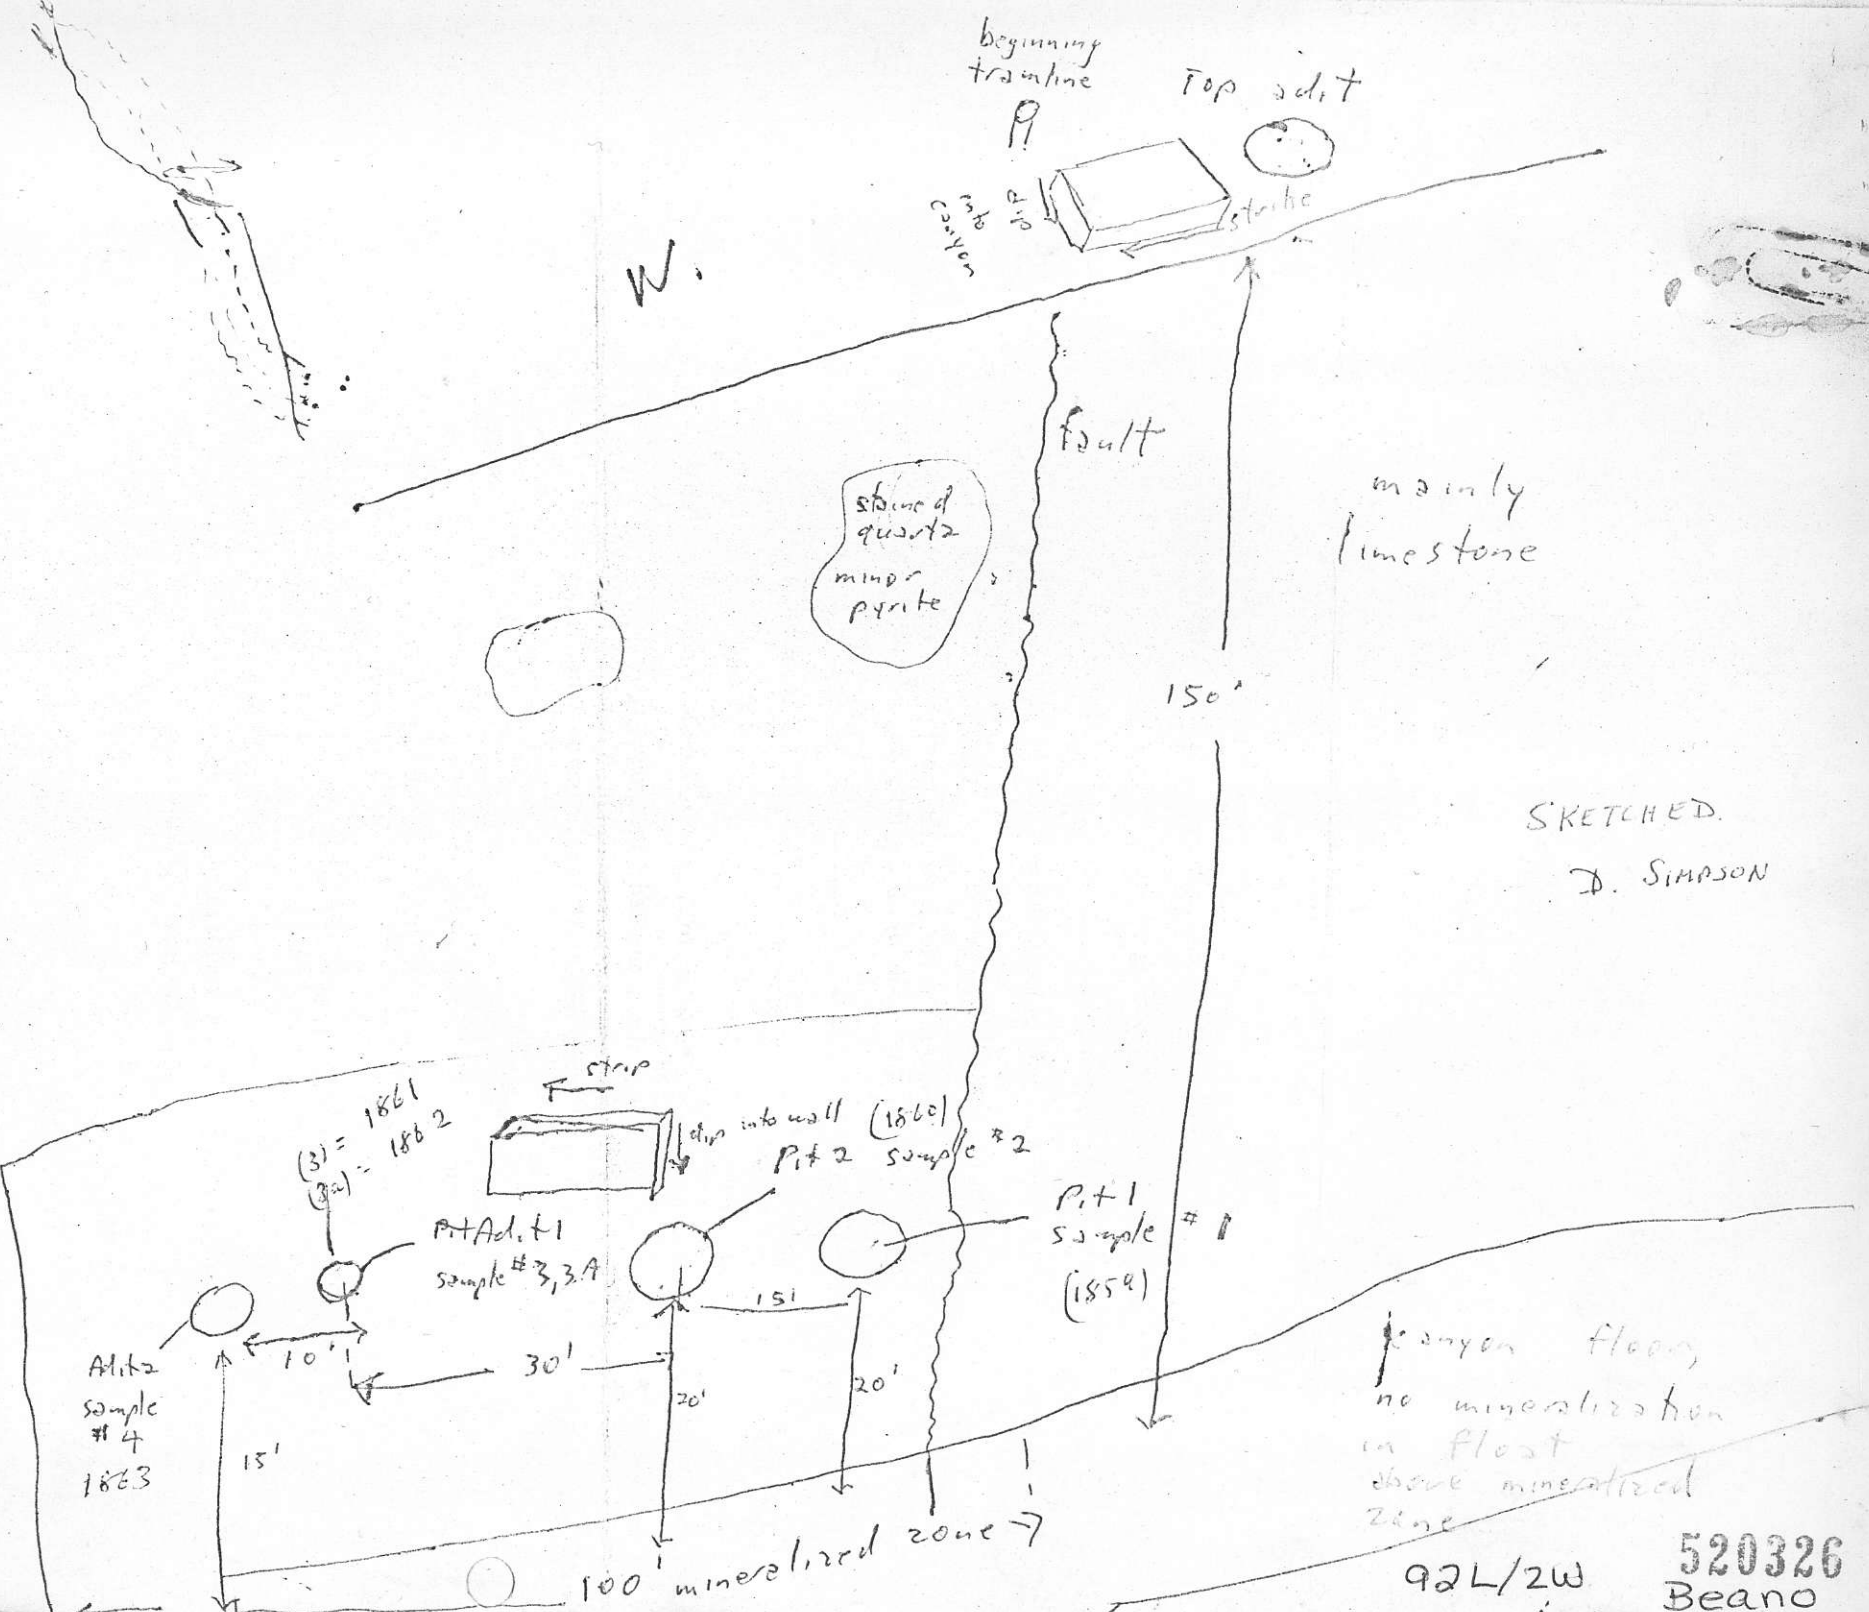 beginning
tramline
Top adit
dip
into
canyon
strike
W.
fault
stained
quartz
minor
pyrite
mainly
limestone
150'
SKETCHED.
D. SIMPSON
strip
dip into wall
(1860)
Pit 2 sample #2
(3) = 1861
(3a) = 1862
Pit Adit 1
sample #3, 3A
Pit 1
sample #1
(1859)
15'
10'
30'
20'
20'
15'
Adit 2
sample
#4
1863
canyon floor,
no mineralization
in float
above mineralized
zone
100' mineralized zone
92L/2W
520326
Beano